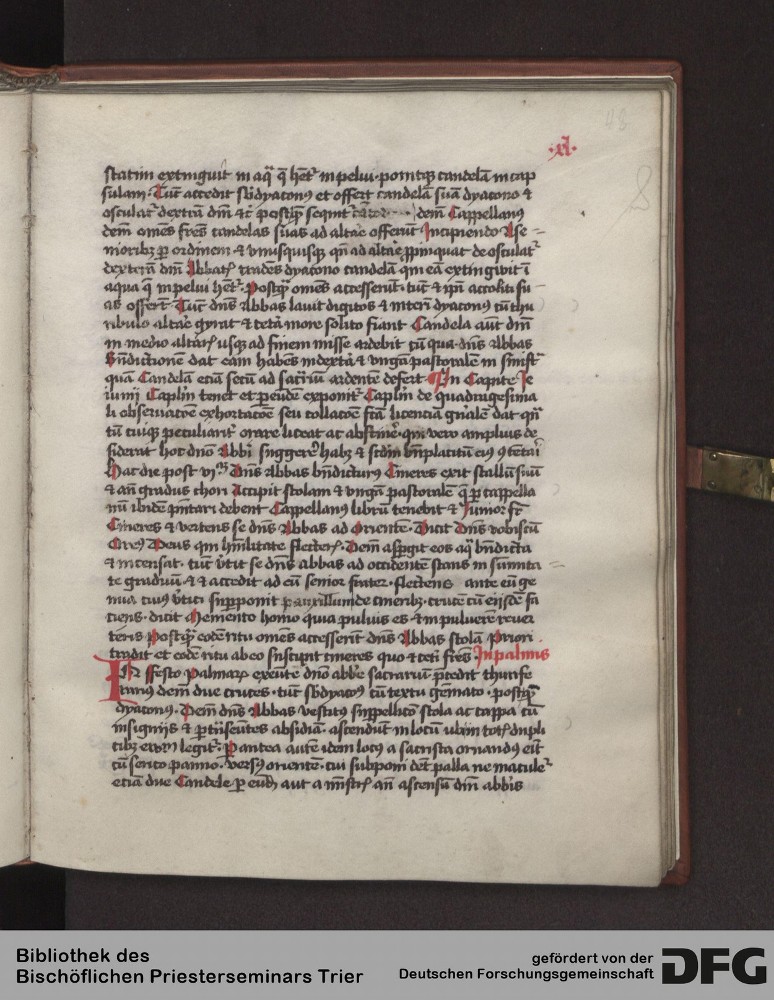 ·xl·
statim extinguit in aqua q̄ het̄ in pelui · ponitqȝ candelā in cap
sulam · Tūc accedit sb̄dyaconꝰ et offert candelā suā dyacono ⁊
osculat᷑ dextrā dn̄i et̄ postqȝ̄ seqūt᷑ dem̄ Cappellanꝰ
dem̄ omēs fr̄es candelas suas ad altāe offerūt Incipiendo A se
nioribȝ ꝑ ordinem ⁊ vnusquisqȝ qn̄ ad altāe ꝓpinquat de osculat᷑
dexterā dn̄i Abbatꝭ trādēs dyacono candelā qui eā extinguit ī
aqua q̄ in pelui het̄ · Postqȝ̄ omēs accesserūt · tūc ⁊ ip̄i accoliti su
as offerēt · Tūc dn̄s Abbas lauit digitos ⁊ interī dyaconꝰ cū thu
ribulo altāe gyrat ⁊ cetā more solito fiant Candela aūt dn̄i
in medio altarꝭ usqȝ ad finem misse ardebit cū qua dn̄s Abbas
bn̄dictionē dat eam habens in dextā ⁊ virgā pastoralē in sinist᷑
quā Candelā eciā secū ad sac̄riū ardente defert In Capite Ie
iunij Caplm̄ tenet et ꝑeude exponit᷑ Caplm̄ de quadragesima
li obseruacōe exhortacōe seu collacōe fc̄ā licenciā gn̄alē dat qn̄
tū cuiqȝ peculiarit᷑ orare liceat ac abstinē᷑ · qui vero amplius de
siderat hoc dn̄o Abbi suggere᷑ habȝ ⁊ scdm̄ bn̄placitū eiꝰ
hac die post vjᵃᵐ Dn̄s Abbas bn̄dicturꝰ Cineres exit stallū suū
⁊ an̄ gradus chori Accipit stolam ⁊ virgā pastoralē q̄ ꝑ cappella
nū ibidē pn̄tari debent Cappellanꝰ librū tenebit ⁊ Iunior fr̄
Cineres ⁊ vertens se dn̄s Abbas ad Orientē · Dicit Dn̄s vobiscū
Oremꝰ Deus qui hūilitate flecterꝭ · Dem̄ asꝑgit eos aq̄ bn̄dicta
⁊ incensat · tūc v̄tit se dn̄s abbas ad occidentē stans in sūmita
te graduū · ⁊ ⁊ accedit ad eū senior frater · flectens ante eū ge
nua cuiꝰ v̄tici suꝑponit pauxillum de cineribȝ · crucē cū eisdē fa
ciens · dicit Memento homo quia puluis es ⁊ in puluerē reuer
teris Postqȝ̄ eodē ritu omēs accesserīt dn̄s Abbas stolā Priori
tradit et eodē ritu ab eo suscipit cineres quo ⁊ ceti fr̄es · In palmis
IN ffesto Palmarꝝ exeūte dn̄o abb̄e sacrarium p̄cedit thurife
rarius dem̄ due cruces · tūc sb̄dyacoꝰ cū textu gēmato · postqȝ̄
dyaconꝰ · Dem̄ dn̄s Abbas vestitꝰ suꝑpellicō stola ac cappa cū
insignijs ⁊ ꝑtn̄seūtes absidiā · ascendūt in locū ubi in totꝭ dupli
cibȝ ewm legit᷑ · Pantea autē idem locꝰ a sacrista ornandꝰ eīt
cū serico panno · versꝰ orientē · cui subponi det̄ palla ne maculet᷑
eciā due Candele ꝑ eundē aut a mīstrꝭ an̄ ascensū dn̄i abbis
Bibliothek des
Bischöflichen Priesterseminars Trier
gefördert von der
Deutschen Forschungsgemeinschaft
DFG